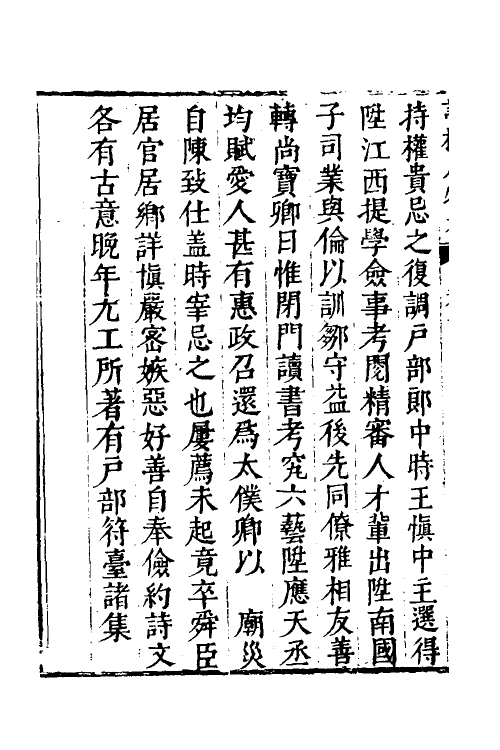 持權貴忌之復調戸部郎中時王愼中主選得
陞江西提學僉事考閱精審人才輩出陞南國
子司業與倫以訓鄒守益後先同僚雅相友善
轉尚寶卿日惟閉門讀書考究六藝陞應天丞
均賦愛人甚有惠政召還爲太僕卿以　廟災
自陳致仕盖時宰忌之也屢薦未起竟卒舜臣
居官居鄉詳愼嚴密嫉惡好善自奉儉約詩文
各有古意晩年尤工所著有戸部符臺諸集